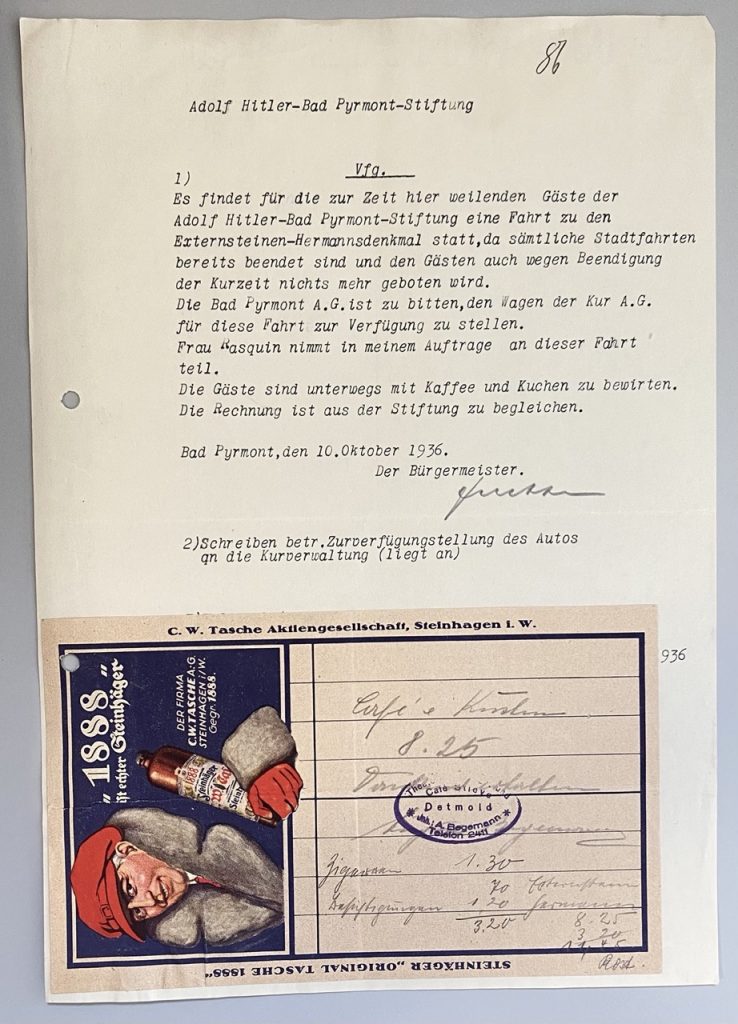 86
Adolf Hitler-Bad Pyrmont-Stiftung
Vfg.
1)
Es findet für die zur Zeit hier weilenden Gäste der
Adolf Hitler-Bad Pyrmont-Stiftung eine Fahrt zu den
Externsteinen-Hermannsdenkmal statt,da sämtliche Stadtfahrten
bereits beendet sind und den Gästen auch wegen Beendigung
der Kurzeit nichts mehr geboten wird.
Die Bad Pyrmont A.G.ist zu bitten,den Wagen der Kur A.G.
für diese Fahrt zur Verfügung zu stellen.
Frau Rasquin nimmt in meinem Auftrage an dieser Fahrt
teil.
Die Gäste sind unterwegs mit Kaffee und Kuchen zu bewirten.
Die Rechnung ist aus der Stiftung zu begleichen.
Bad Pyrmont,den 10.Oktober 1936.
Der Bürgermeister.
2)Schreiben betr.Zurverfügungstellung des Autos
an die Kurverwaltung (liegt an)
936
C. W. Tasche Aktiengesellschaft, Steinhagen i. W.
"1888"
echter Steinhäger
DER FIRMA
C.W.TASCHE A:G.
STEINHAGEN i/W.
Gegr. 1888.
Café
8.25
Café
Detmold
Inh.: A. Begemann
Telefon 2411
Zigarren 1.30
70
Besichtigungen 1 20
3.20
8.25
3.20
STEINHÄGER „ORIGINAL TASCHE 1888"